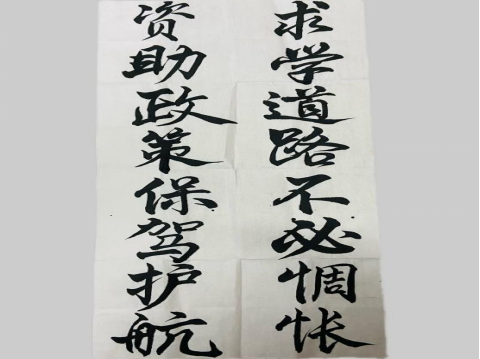 求学道路不必惆怅
资助政策保驾护航